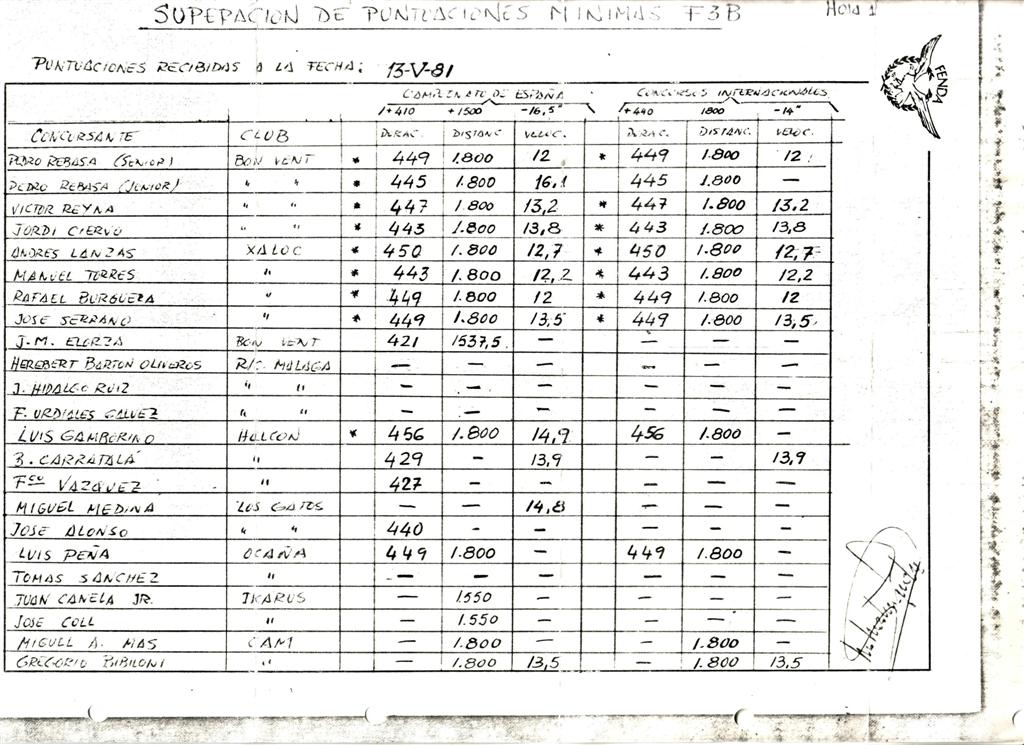 SUPERACION DE PUNTUACIONES MINIMAS F3B HOJA 1
PUNTUACIONES RECIBIDAS A LA FECHA: 13-V-81
FENDA
CAMPEONATO DE ESPAÑA CONCURSOS INTERNACIONALES
+410 +1500 -16,5" +440 1800 -14"
CONCURSANTE CLUB DURAC. DISTANC VELOC. DURAC. DISTANC. VELOC.
PEDRO REBASA (SENIOR) BON VENT * 449 1.800 12 * 449 1.800 12
PEDRO REBASA (JUNIOR) " " * 445 1.800 16,1 445 1.800 —
VICTOR REYNA " " * 447 1.800 13,2 * 447 1.800 13.2
JORDI CIERVO " " * 443 1.800 13,8 * 443 1.800 13,8
ANDRES LANZAS XALOC * 450 1.800 12,7 * 450 1.800 12,7
MANUEL TORRES " * 443 1.800 12,2 * 443 1.800 12,2
RAFAEL BURGUERA " * 449 1.800 12 * 449 1.800 12
JOSE SERRANO " * 449 1.800 13,5 * 449 1.800 13,5
J.M. ELORZA BON VENT 421 1537,5 — — — —
HEREBERT BARTON OLIVEROS R/C MALAGA — — — — — —
J. HIDALGO RUIZ " " — — — — — —
F. URDIALES GALVEZ " " — — — — — —
LUIS GAMBORINO HALCON * 456 1.800 14,9 456 1.800 —
B. CARRATALÁ " 429 — 13,9 — — 13,9
Fco VAZQUEZ " 427 — — — — —
MIGUEL MEDINA LOS GATOS — — 14,8 — — —
JOSE ALONSO " " 440 - - — — —
LUIS PEÑA OCAÑA 449 1.800 — 449 1.800 —
TOMAS SANCHEZ " — — — — — —
JUAN CANELA JR. IKARUS — 1550 — — — —
JOSE COLL " — 1.550 — — — —
MIGUEL A. MAS CAMI — 1.800 — — 1.800 —
GREGORIO BIBILONI " — 1.800 13,5 — 1.800 13,5